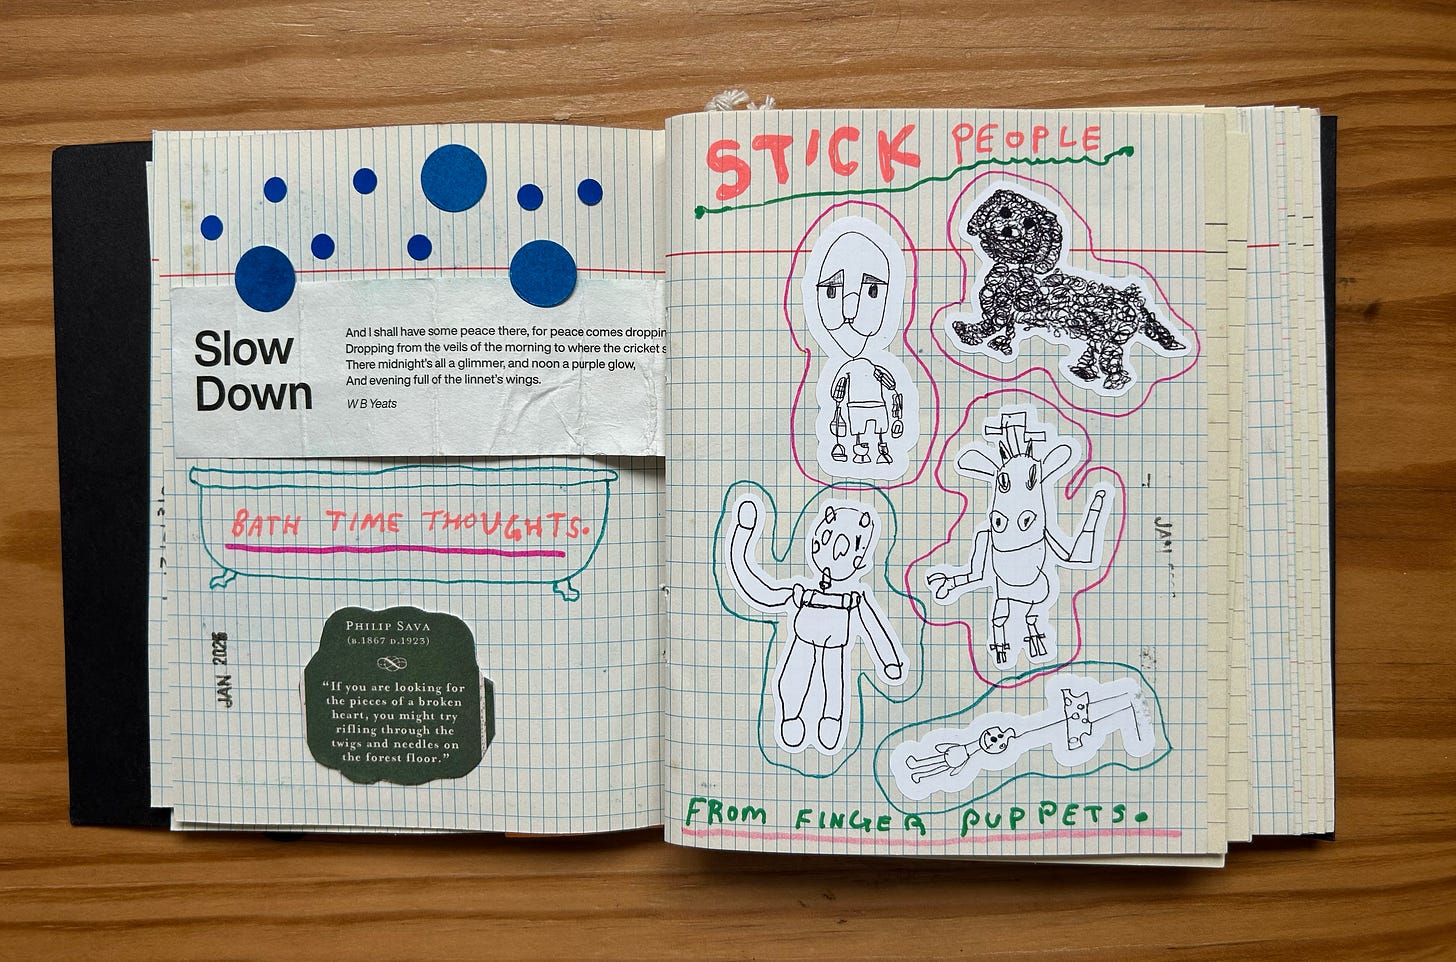 Slow
Down
And I shall have some peace there, for peace comes droppin
Dropping from the veils of the morning to where the cricket s
There midnight's all a glimmer, and noon a purple glow,
And evening full of the linnet's wings.
W B Yeats
BATH TIME THOUGHTS.
JAN 2025
PHILIP SAVA
(B.1867 D.1923)
"If you are looking for
the pieces of a broken
heart, you might try
rifling through the
twigs and needles on
the forest floor."
STICK PEOPLE
JAN
FROM FINGER PUPPETS.